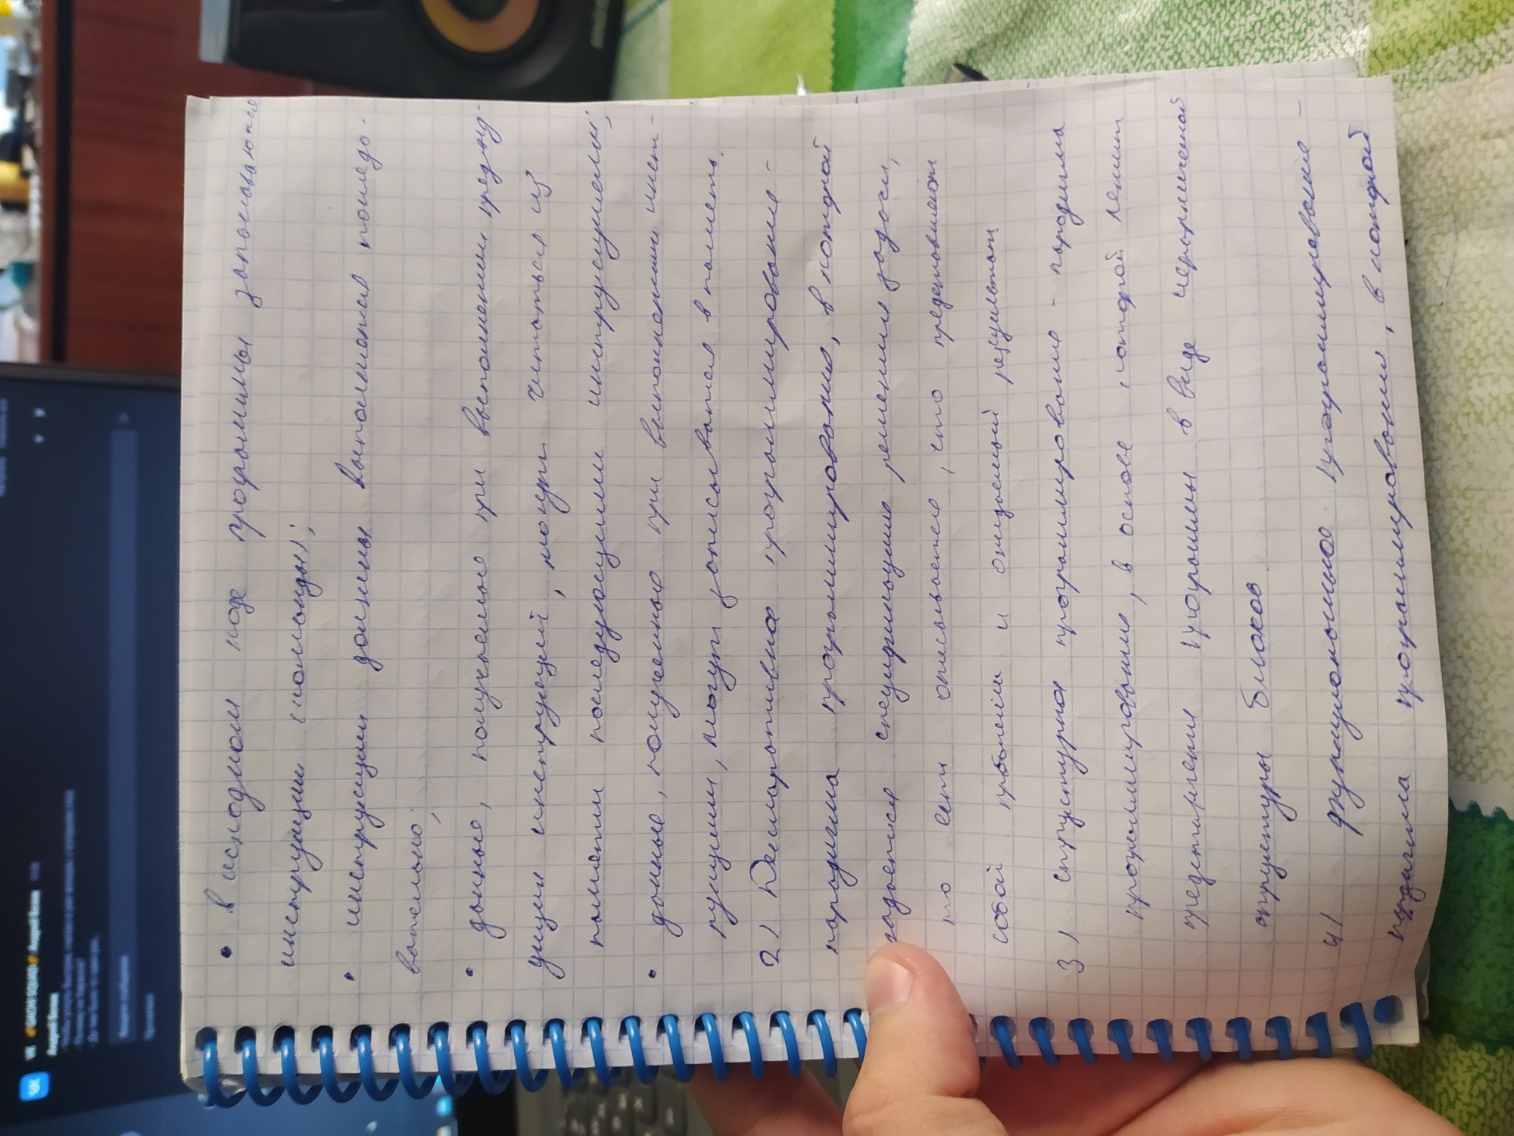 VK GACHI SQUAD: Андрей Белик
Андрей Белик
- Почему не баранов?
Введите сообщение
• в исходном коде программы записываются
инструкции (команды);
• инструкции должны выполнятся последо-
вательно;
• данные, получаемые при выполнении предыд-
ущих инструкций, могут читаться из
памяти последующими инструкциями;
• данные, полученные при выполнении инст-
рукции, могут записыватся в память.
2) Декларативное программирование -
парадигма программирования, в которой
задается спецификация решения задачи,
то есть описывается, что представляет
собой проблема и ожидаемый результат
3) Структурное программирование - парадигма
программирования, в основе которой лежит
представление программы в виде иерархической
структуры блоков.
4) функциональное программирование -
парадигма программирования, в которой